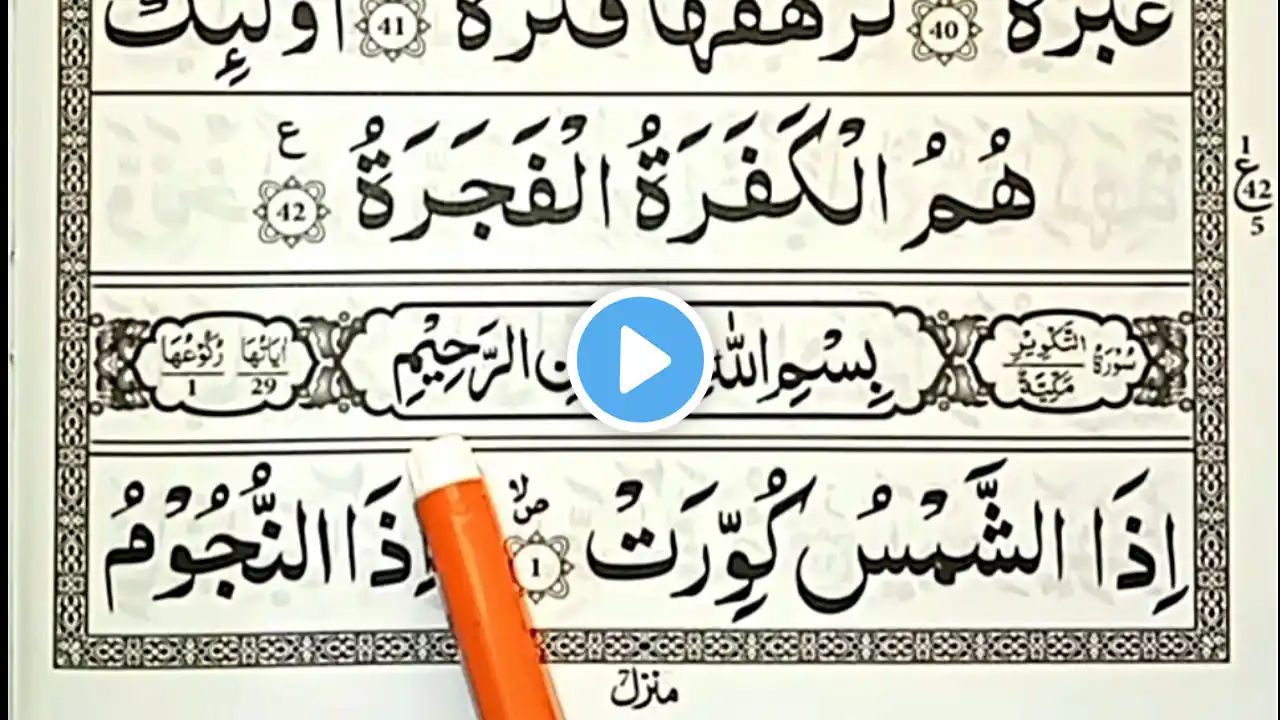 غَبَرَةٌ 40 تَرْهَقُهَا قَتَرَةٌ 41 اُولٰٓئِكَ
هُمُ الْكَفَرَةُ الْفَجَرَةُ 42 ع
1 ع 42 5
سُوْرَةُ التَّكْوِيْرِ مَكِّيَّةٌ
بِسْمِ اللّٰهِ الرَّحِيْمِ
اٰيَاتُهَا 29 رُكُوْعُهَا 1
اِذَا الشَّمْسُ كُوِّرَتْ 1 صلا اِذَا النُّجُوْمُ
منزل ٧